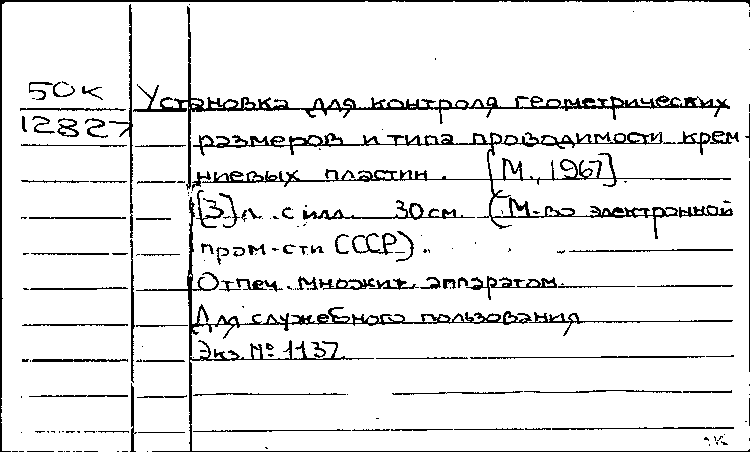 50К Установка для контроля геометрических
12827 размеров и типа проводимости крем-
ниевых пластин. [М., 1967]
[3] л. с илл. 30 см. (М-во электронной
пром-сти СССР).
Отпеч. множит. аппаратом.
Для служебного пользования
Экз. № 1137.